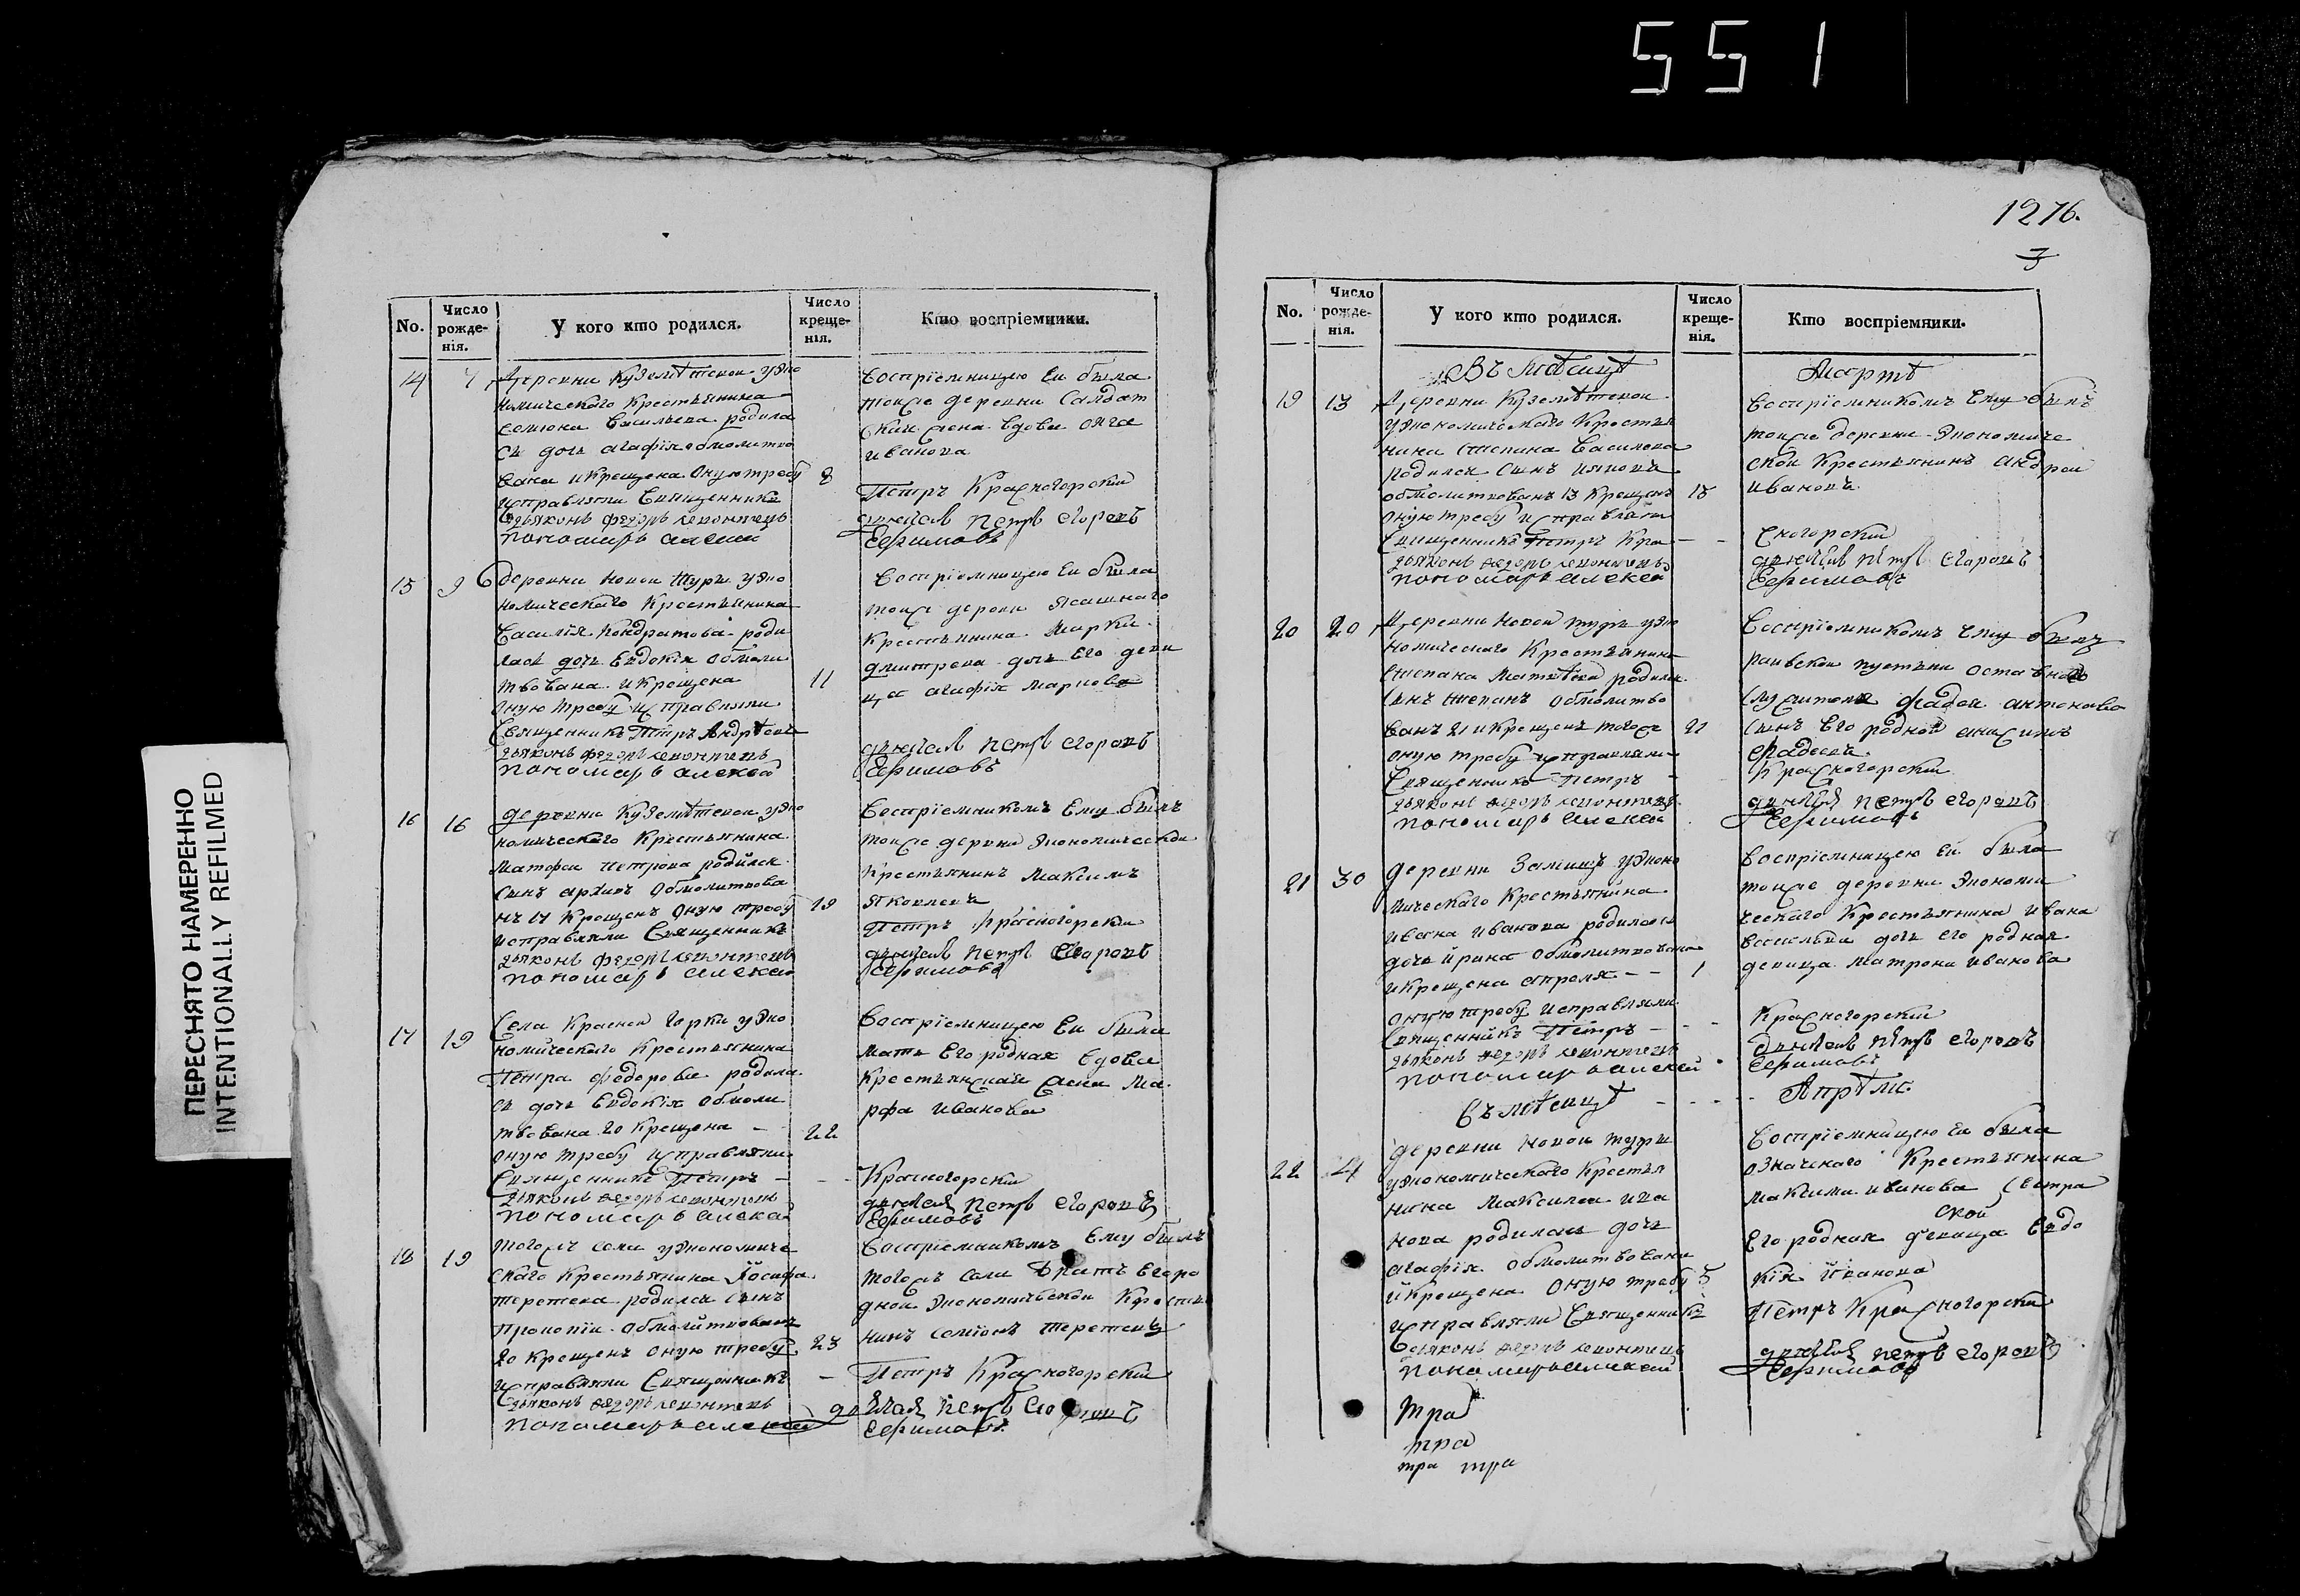 551
ПЕРЕСНЯТО НАМЕРЕННО
INTENTIONALLY REFILMED
No.
Число рожде-нія.
У кого кто родился.
Число креще-нія.
Кто воспріемники.
14 7 Деревни Кузелѣтекои уэко
номическаго Крестьянина
Семиона Васильева родила
съ дочь агафія обмолитво
вана и Крещена Оную требу 8
исправляли Священникъ
дьяконъ федоръ леонтевъ
пономарь алексеи
воспріемницею Ей была
тоиже деревни Салдат
ская жена вдова
иванова
Петръ Красногорскiй
дьячокъ петръ егоровъ
Ефимовъ
15 9 деревни Новои Шури уэко
номическаго Крестьянина
Василія Кондратова роди
лась дочь Евдокія Обмоли
твована и Крещена 11
оную требу исправляли
Священникъ Петръ Андрѣевъ
дьяконъ федоръ леонтевъ
пономарь алексеи
воспріемницею Ей была
тоиже деревни Ясашнаго
Крестьянина Марки
дмитрева дочь Его деви
ца агафія Маркова
дьячокъ петръ егоровъ
Ефимовъ
16 16 деревни Кузелѣтекои уэко
номическаго Крестьянина
Матфея петрова родился
сынъ архипъ обмолитвова
нъ 17 Крещенъ Оную требу 19
исправляли Священникъ
дьяконъ федоръ леонтевъ
пономарь алексеи
Воспріемникомъ Ему былъ
тоиже деревни Экономическои
Крестьянинъ Максимъ
яковлевъ
Петръ Красногорски
дьячокъ петръ Егоровъ
Ефимовъ
17 19 Села Краснои горки уэко
номическаго Крестьянина
Петра федорова родила
съ дочь Евдокія Обмоли
твована 20 Крещена 22
оную требу исправляли
Священникъ Петръ
дьяконъ федоръ леонтевъ
пономарь алексеи
Воспріемницею Ей была
мать Его родная вдова
Крестьянская жена Ма
рфа иванова
Красногорски
дьячокъ петръ егоровъ
Ефимовъ
18 19 тогожъ села уэкономиче
скаго Крестьянина Іосифа
терентева родился сынъ
прокопіи Обмолитвованъ
20 Крещенъ оную требу 23
исправляли Священникъ
дьяконъ федоръ леонтевъ
пономарь алексеи
Воспріемникомъ Ему былъ
тогожъ села братъ Егоро
днои экономическои Крестья
нинъ семіонъ терентевъ
Петръ Красногорски
дьячокъ петръ егоровъ
Ефимовъ
1276.
3
No.
Число рожде-нія.
У кого кто родился.
Число креще-нія.
Кто воспріемники.
Въ Мѣсяцѣ Мартѣ
19 13 Деревни Кузелѣтекои
уэкономическаго Крестья
нина Степана Василева
родился сынъ
обмолитвованъ 13 Крещенъ 15
оную требу исправляли
Священникъ Петръ Кра
дьяконъ федоръ леонтевъ
пономарь алексеи
воспріемникомъ Ему былъ
тоиже деревни Экономиче
скои Крестьянинъ андреи
ивановъ
сногорски
дьячокъ петръ егоровъ
Ефимовъ
20 20 Деревни Новои шури уэко
номическаго Крестьянина
Степана Матвѣева родился
сынъ степанъ Обмолитво
ванъ 21 и Крещенъ тогоже 21
оную требу исправляли
Священникъ Петръ
дьяконъ федоръ леонтевъ
пономарь алексеи
Воспріемникомъ Ему былъ
пустыни оставнаго
служителя фадея антонова
сынъ Его роднои
фадеевъ
Красногорски
дьячокъ петръ егоровъ
Ефимовъ
21 30 деревни уэконо
мическаго Крестьянина
ивана иванова родилась
дочь ирина обмолитвована
и Крещена апреля 1
оную требу исправляли
Священникъ Петръ
дьяконъ федоръ леонтевъ
пономарь алексеи
воспріемницею Ей была
тоиже деревни Экономи
ческаго Крестьянина ивана
василева дочь его родная
девица матрона иванова
Красногорски
дьячокъ петръ егоровъ
Ефимовъ
въ мѣсяцѣ Апрѣле
22 4 деревни новои шури
уэкономическаго Крестья
нина Максима ива
нова родилась дочь
агафія обмолитвована
и Крещена оную требу 5
исправляли Священникъ
дьяконъ федоръ леонтевъ
пономарь алексеи
Воспріемницею Ей была
означенаго Крестьянина
максима иванова сестра
ской
Его родная девица Евдо
кія Иванова
Петръ Красногорски
дьячокъ петръ егоровъ
Ефимовъ
тра
тра
тра тра